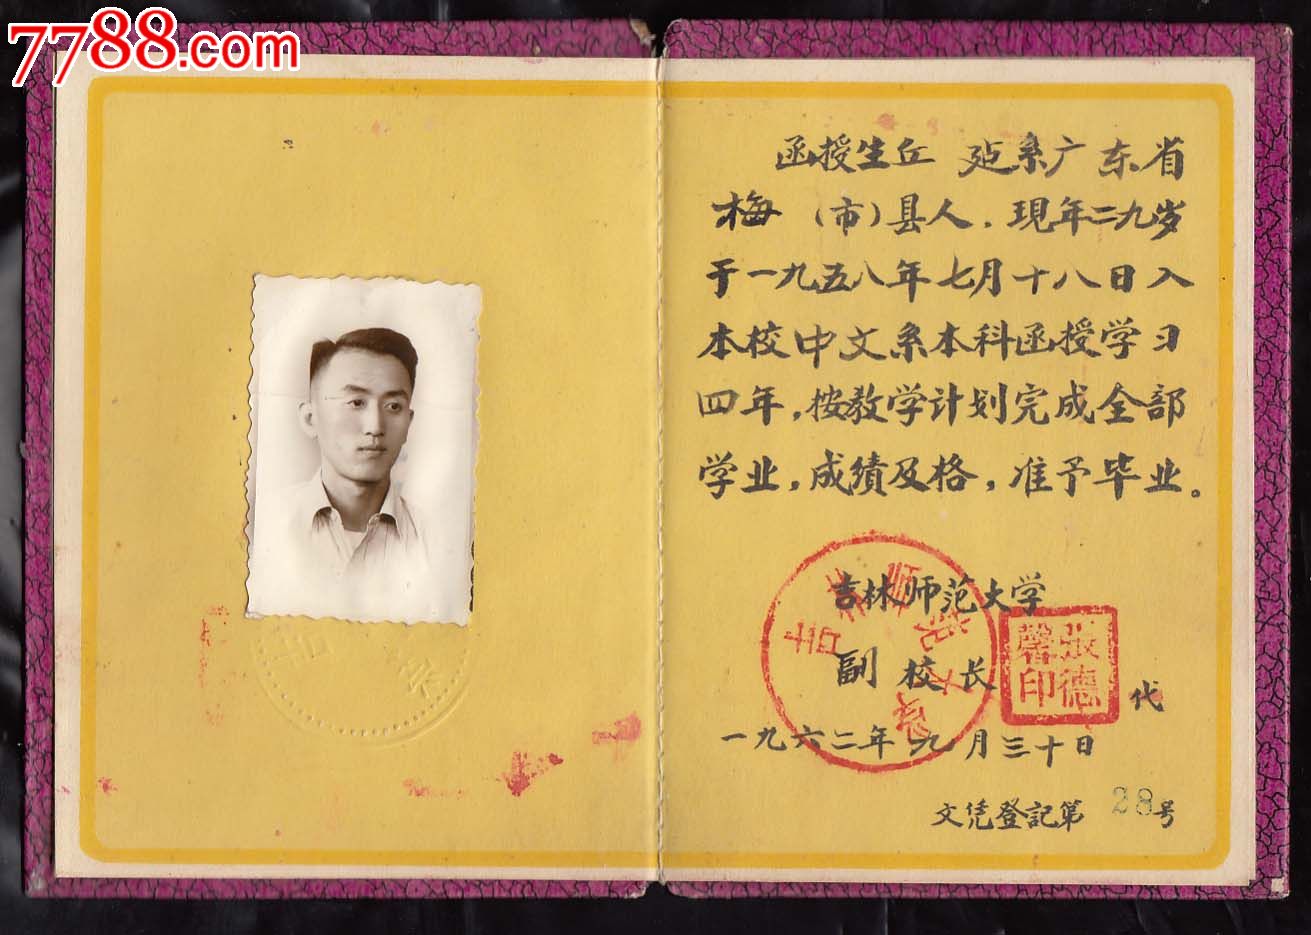 7788.com
函授生丘 延系广东省
梅 (市)县人．現年二九岁
于一九五八年七月十八日入
本校中文系本科函授学习
四年，按教学计划完成全部
学业，成績及格，准予毕业。
吉林师范大学
副校长
张德
馨印
代
一九六二年九月三十日
文凭登記第28号
吉林师范大学